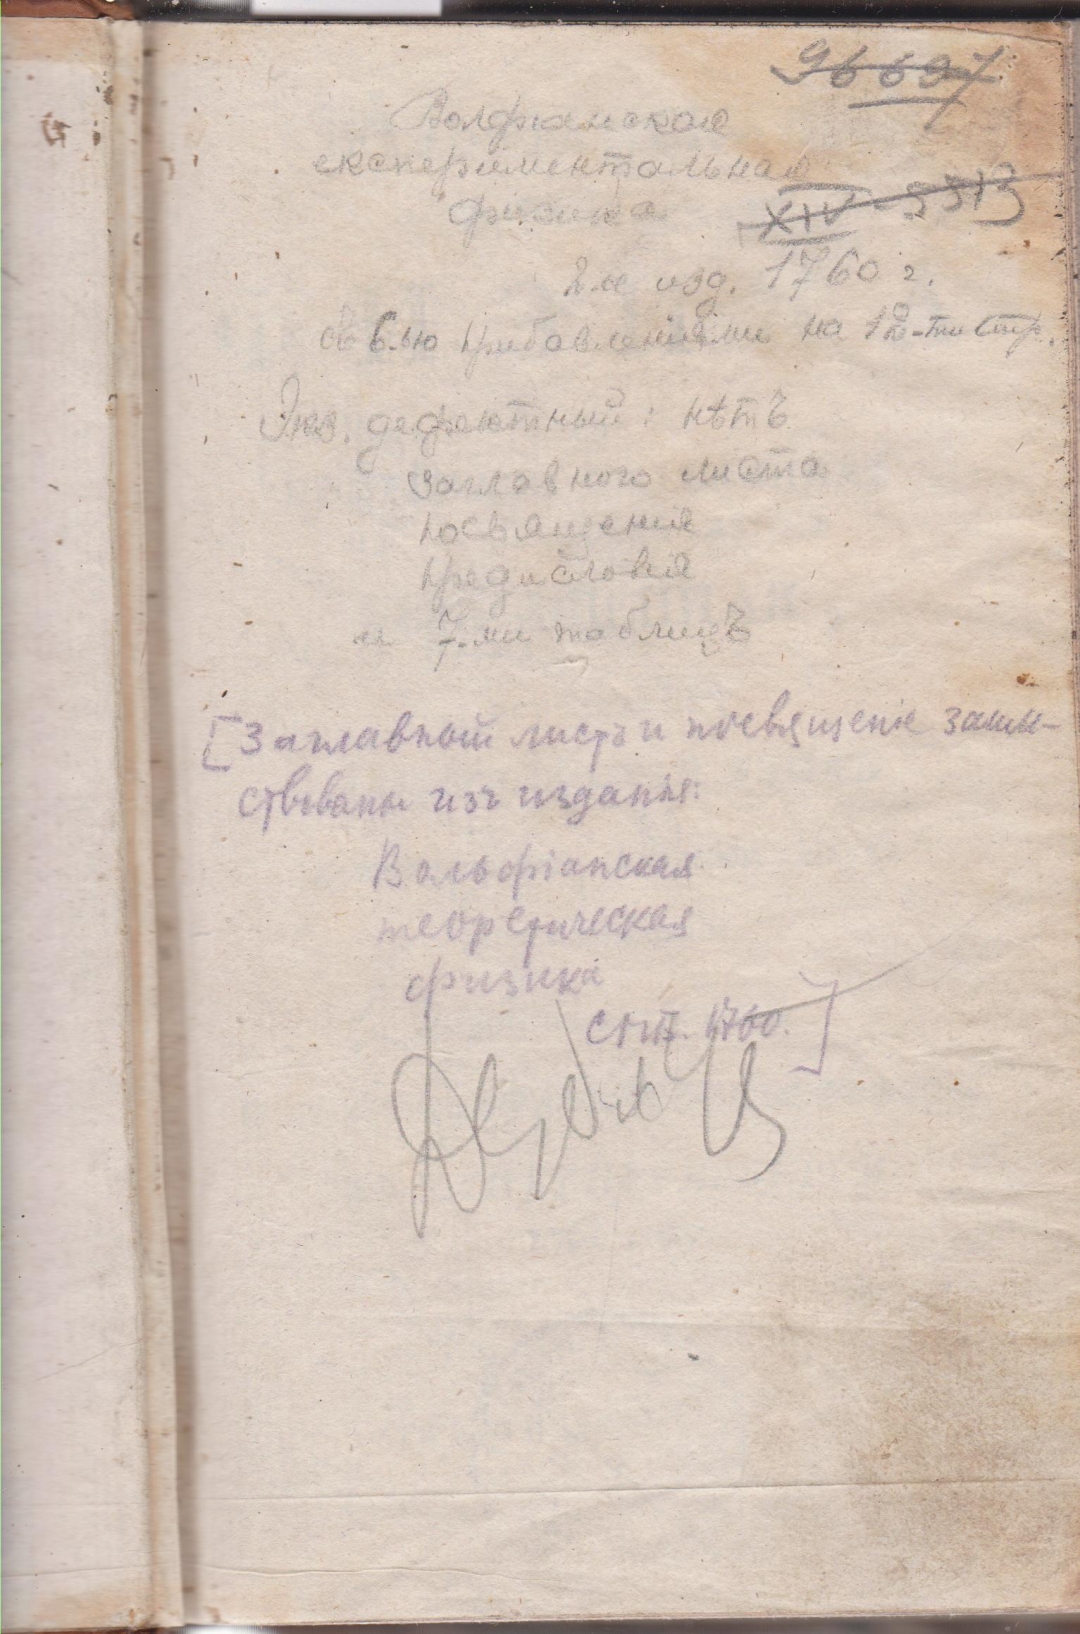 96697
Волфианская
експериментальная
физика
XIV-3313
2-е изд. 1760 г.
съ 6-ью прибавленіями на 12-ти стр.
Экз. дефектный: нѣтъ
заглавного листа
посвященія
предисловія
и 7-ми таблицъ
[Заглавный листъ и посвященіе заим-
ствованы изъ изданія:
Вольфіанская
теоретическая
физика
СПП. 1760.]